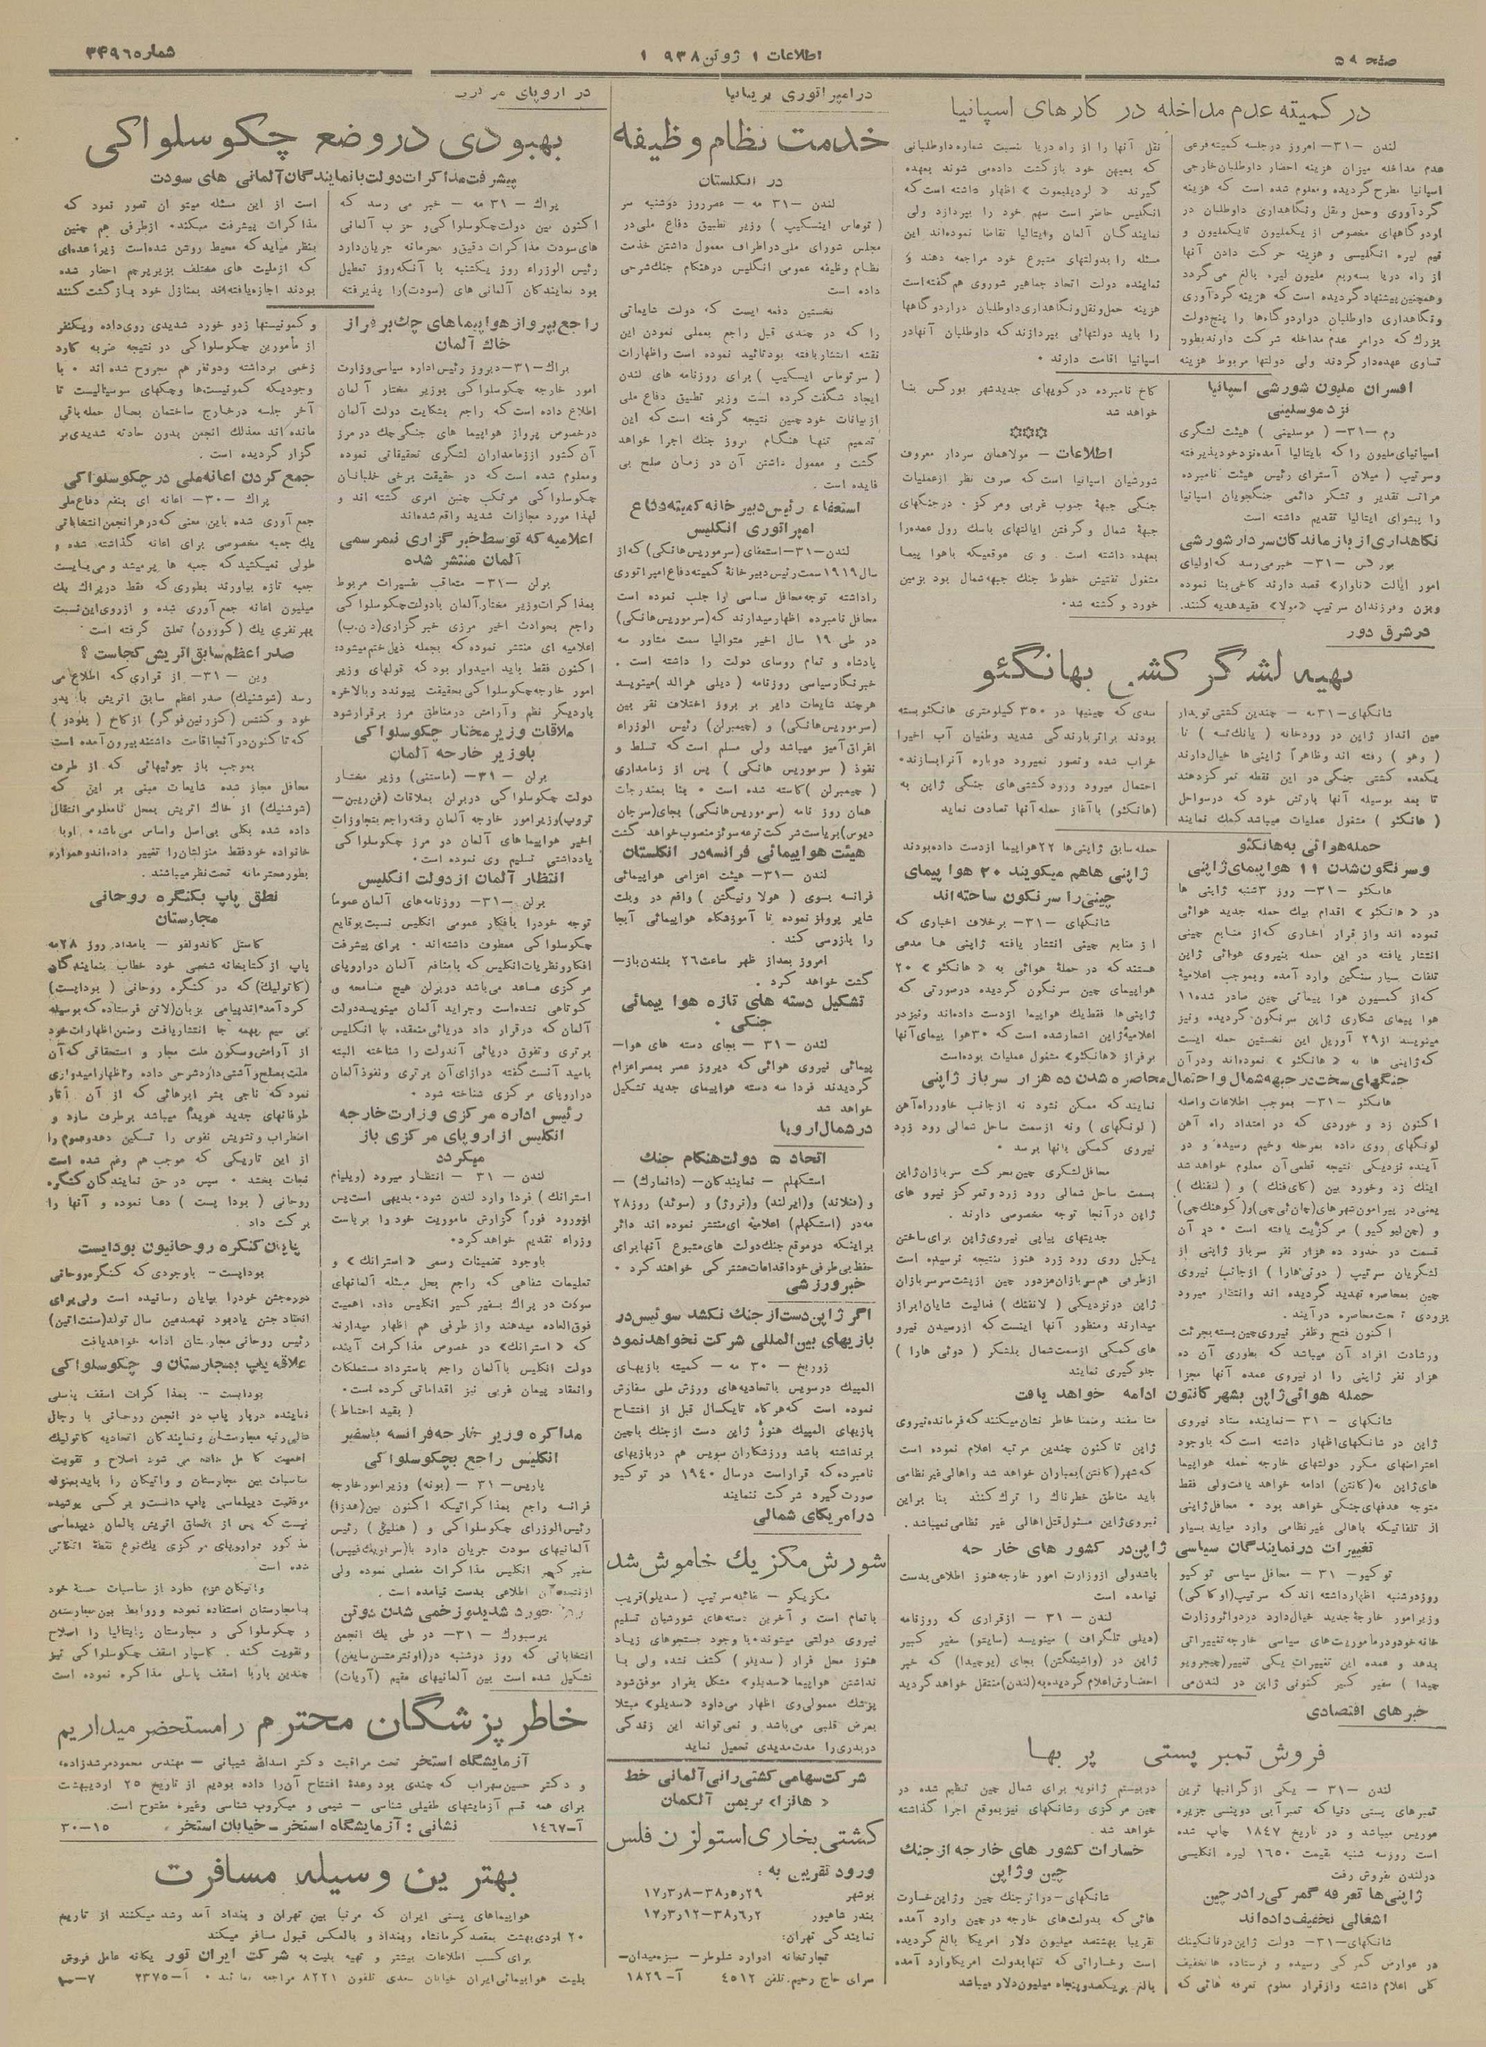 صفحه ۵۹
اطلاعات ۱ ژوئن ۱۹۳۸
شماره ۳۴۹۶۵
در کمیته عدم مداخله در کارهای اسپانیا
لندن -۳۱- امروز در جلسه کمیته فرعی
عدم مداخله میزان هزینه احضار داوطلبان خارجی
اسپانیا مطرح گردیده و معلوم شده است که هزینه
گردآوری وحمل ونقل ونگاهداری داوطلبان در
اردوگاههای مخصوص از یکملیون تایکملیون و
نیم لیره انگلیسی و هزینه حرکت دادن آنها
از راه دریا بسه‌ربع ملیون لیره بالغ می گردد
وهمچنین پیشنهاد گردیده است که هزینه گردآوری
ونگاهداری داوطلبان دراردوگاه‌ها را پنج‌دولت
بزرگ که درامر عدم مداخله شرکت دارند بطور
تساوی عهده‌دار گردند ولی دولتها مربوط هزینه
نقل آنها را از راه دریا بنسبت شماره داوطلبانی
که بمیهن خود بازگشت داده‌می شوند بعهده
گیرند « لردپلیموت » اظهار داشته است که
انگلیس حاضر است سهم خود را بپردازد ولی
نمایندگان آلمان وایتالیا تقاضا نموده‌اند این
مسئله را بدولتهای متبوع خود مراجعه دهند و
نماینده دولت اتحاد جماهیر شوروی هم گفته است
هزینه حمل‌ونقل‌ونگاهداری داوطلبان دراردوگاهها
را باید دولتهائی بپردازند که داوطلبان آنهادر
اسپانیا اقامت دارند .
افسران ملیون شورشی اسپانیا
نزد موسلینی
رم -۳۱- ( موسلینی ) هیئت لشگری
اسپانیای‌ملیون را که بایتالیا آمده نزدخودپذیرفته
وسرتیپ ( میلان آسترای رئیس هیئت نامبرده
مراتب تقدیر و تشکر دائمی جنگجویان اسپانیا
را پیشوای ایتالیا تقدیم داشته است
نگاهداری از بازماندگان سردار شورشی
بورگس -۳۱- خبر می‌رسد که اولیای
امور ایالت «ناوار» قصد دارند کاخی بنا نموده
وبزن وفرزندان سرتیپ «مولا» فقیدهدیه کنند.
کاخ نامبرده در کویهای جدیدشهر بورگس بنا
خواهد شد
***
اطلاعات - مولاهمان سردار معروف
شورشیان اسپانیا است که صرف نظر ازعملیات
جنگی جبهه جنوب غربی ومرکز . درجنگهای
جبهه شمال و گرفتن ایالتهای باسك رول عمده‌را
بعهده داشته است . وی موقعیکه باهوا پیما
مشغول تفتیش خطوط جنك جبهه‌شمال بود بزمین
خورد و کشته شد.
درشرق دور
تهیه لشگر کشی بهانگئو
شانگهای-۳۱مه - چندین کشتی توپدار
مین انداز ژاپن در رودخانه ( یانك‌تسه ) تا
( وهو ) رفته اند وظاهراً ژاپنی ها خیال‌دارند
یکعده کشتی جنگی در این نقطه تمرکزدهند
تا بعد بوسیله آنها بارتش خود که درسواحل
( هانکئو ) مشغول عملیات میباشد کمك نمایند
سدی که چینیها در ۳۵۰ کیلومتری هانکئوبسته
بودند براثر بارندگی شدید وطغیان آب اخیرا
خراب شده وتصور نمیرود دوباره آنرابسازند.
احتمال میرود ورود کشتی‌های جنگی ژاپن به
(هانکئو) باآغاز حمله‌آنها تصادف نماید
حمله هوائی به هانکئو
وسرنگون شدن ۱۱ هواپیمای ژاپنی
هانکئو -۳۱- روز ۳شنبه ژاپنی ها
در « هانکئو » اقدام بیك حمله جدید هوائی
نموده اند واز قرار اخباری که‌از منابع چینی
انتشار یافته در این حمله بنیروی هوائی ژاپن
تلفات بسیارسنگین وارد آمده وبموجب اعلامیهٔ
که‌از کمسیون هوا پیمائی چین صادر شده ۱۱
هوا پیمای شکاری ژاپن سرنگون گردیده ونیز
مینویسد از۲۹ آوریل این نخستین حمله ایست
که ژاپنی ها به « هانکئو » نموده‌اند ودرآن
حمله سابق ژاپنی ها ۲۲هواپیما ازدست داده‌بودند
ژاپنی هاهم میگویند ۲۰ هوا پیمای
چینی را سرنگون ساخته‌اند
شانگهای -۳۱- برخلاف اخباری که
از منابع چینی انتشار یافته ژاپنی ها مدعی
هستند که در حملهٔ هوائی به « هانکئو » ۲۰
هواپیمای چین سرنگون گردیده درصورتی که
ژاپنی‌ها فقط‌یك هواپیما ازدست داده‌اند ونیزدر
اعلامیهٔ ژاپن اشعارشده است که ۳۰هوا پیمای‌آنها
برفراز «هانکئو» مشغول عملیات بوده‌است
جنگهای سخت در جبهه شمال و احتمال محاصره شدن ده هزار سرباز ژاپنی
هانکئو -۳۱- بموجب اطلاعات واصله
اکنون زد و خوردی که در امتداد راه آهن
لونگهای روی داده بمرحله وخیم رسیده و در
آینده نزدیکی نتیجه قطعی‌آن معلوم خواهد شد
اینك زد وخورد بین ( کای‌فنك ) و ( لنفنك )
یعنی‌در پیرامون‌شهرهای(چان‌ئی‌چی)و(کوهنك‌چی)
و (چن‌لیوکیو ) مرکزیت یافته است . در آن
قسمت در حدود ده هزار نفر سرباز ژاپنی از
لشگریان سرتیپ ( دوئی‌هارا ) ازجانب نیروی
چین بمحاصره تهدید گردیده اند وانتظار میرود
بزودی تحت‌محاصره درآیند.
اکنون فتح وظفر نیروی‌چین بسته‌بجرئت
ورشادت افراد آن میباشد که بطوری آن ده
هزار نفر ژاپنی را از نیروی عمده آنها مجزا
نمایند که ممکن نشود نه ازجانب خاورراه‌آهن
( لونگهای ) ونه ازسمت ساحل شمالی رود زرد
نیروی کمکی بآنها برسد .
محافل‌لشگری چین‌بحرکت سربازان‌ژاپن
بسمت ساحل شمالی رود زرد وتمرکز نیرو های
ژاپن درآنجا توجه مخصوصی دارند.
جدیتهای پیاپی نیروی‌ژاپن برای‌ساختن
یکپل روی رود زرد هنوز بنتیجه نرسیده است
ازطرفی هم‌سربازان‌مزدور چین ازپشت سرسربازان
ژاپن درنزدیکی ( لانفنك ) فعالیت شایان‌ابراز
میدارند ومنظور آنها اینست که ازرسیدن نیرو
های کمکی ازسمت‌شمال بلشگر ( دوئی هارا )
جلوگیری نمایند
حمله هوائی ژاپن بشهر کانتون ادامه خواهد یافت
شانگهای - ۳۱ -نماینده ستاد نیروی
ژاپن در شانگهای‌اظهار داشته است که باوجود
اعتراضهای مکرر دولتهای خارجه حمله هواپیما
های‌ژاپن به(کانتن) ادامه خواهد یافت‌ولی فقط
متوجه هدفهای‌جنگی خواهد بود . محافل‌ژاپنی
از تلفاتیکه باهالی غیرنظامی وارد میاید بسیار
متاسفند وضمنا خاطر نشان‌میکنند که فرمانده‌نیروی
ژاپن تاکنون چندین مرتبه اعلام نموده است
که‌شهر(کانتن)بمباران خواهد شد واهالی‌غیرنظامی
باید مناطق خطرناك را ترك‌کنند بنا براین
نیروی‌ژاپن مسئول‌قتل‌اهالی غیر نظامی نمیباشد.
تغییرات در نمایندگان سیاسی ژاپن در کشور های خارجه
توکیو- ۳۱ - محافل سیاسی توکیو
روزدوشنبه اظهارداشته اند که سرتیپ(اوگاکی)
وزیرامور خارجهٔ جدید خیال‌دارد دردوائروزارت
خانه‌خودودرماموریت‌های سیاسی خارجه‌تغییراتی
بدهد و عمده این تغییرات یکی تغییر(چیجرویو
چیدا ) سفیر کبیر کنونی ژاپن در لندن‌می
باشدولی ازوزارت امور خارجه‌هنوز اطلاعی‌بدست
نیامده است
لندن - ۳۱ - ازقراری که روزنامه
(دیلی تلگراف ) مینویسد (سایتو) سفیر کبیر
ژاپن در (واشینگتن) بجای (یوچیدا) که خبر
احضارش‌اعلام گردیده‌به(لندن)منتقل خواهدگردید
خبرهای اقتصادی
فروش تمبر پستی پر بها
لندن -۳۱ - یکی از گرانبها ترین
تمبرهای پستی دنیاکه تمبرآبی دوپنسی جزیره
موریس میباشد و در تاریخ ۱۸۴۷ چاپ شده
است روزسه شنبه بقیمت ۱۶۵۰ لیره انگلیسی
درلندن بفروش رفت
ژاپنی‌ها تعرفه گمرکی‌رادرچین
اشغالی تخفیف داده‌اند
شانگهای-۳۱- دولت ژاپن‌درفانکینك
در عوارض گمرکی رسیده و فرستاده هاتخفیف
کلی اعلام داشته وازقرار معلوم تعرفه هائی که
دربیستم ژانویه برای شمال چین تنظیم شده در
چین مرکزی وشانگهای نیزبموقع اجرا گذاشته
خواهد شد .
خسارات کشور های خارجه از جنك
چین وژاپن
شانگهای-دراثرجنك چین وژاپن‌خسارت
هائی که بدولت‌های خارجه درچین وارد آمده
تقریبا بهشتصد میلیون دلار امریکا بالغ گردیده
است وخساراتی که تنهابدولت امریکاوارد آمده
بالغ بریکصدوپنجاه میلیون‌دلار میباشد
درامپراتوری بریتانیا
خدمت نظام وظیفه
در انگلستان
لندن -۳۱ مه - عصرروز دوشنبه سر
(توماس اینسکیپ ) وزیر تطبیق دفاع ملی‌در
مجلس شورای ملی‌دراطراف معمول داشتن خدمت
نظام وظیفه عمومی انگلیس درهنگام جنك‌شرحی
داده است
نخستین دفعه ایست که دولت شایعاتی
را که در چندی قبل راجع بعملی نمودن این
نقشه انتشاریافته بودتائید نموده است واظهارات
( سرتوماس اینسکیپ ) برای روزنامه های لندن
ایجاد شگفت کرده است وزیر تطبیق دفاع ملی
ازبیانات خودچنین نتیجه گرفته است که این
تصمیم تنها هنگام بروز جنك اجرا خواهد
گشت و معمول داشتن آن در زمان صلح بی
فایده است .
استعفاء رئیس دبیر خانه کمیته دفاع
امپراتوری انگلیس
لندن -۳۱-استعفای (سرموریس‌هانکی) که‌از
سال ۱۹۱۹ سمت رئیس دبیر خانهٔ کمیته دفاع‌امپراتوری
راداشته توجه محافل سیاسی را جلب نموده است
محافل نامبرده اظهار میدارند که(سرموریس‌هانکی)
در طی ۱۹ سال اخیر متوالیا سمت مشاور سه
پادشاه و تمام روسای دولت را داشته است .
خبرنگارسیاسی روزنامه ( دیلی هرالد )مینویسد
هرچند شایعات دایر بر بروز اختلاف نظر بین
(سرموریس‌هانکی) و (چیمبرلن) رئیس الوزراء
اغراق‌آمیز میباشد ولی مسلم است که تسلط و
نفوذ ( سرموریس هانکی ) پس از زمامداری
( چیمبرلن ) کاسته شده است . بنا بمندرجات
همان روز نامه (سرموریس‌هانکی) بجای(سرجان
دیوس)بریاست‌شرکت‌ترعه‌سوئزمنصوب‌خواهدگشت
هیئت هواپیمائی فرانسه در انگلستان
لندن -۳۱- هیئت اعزامی هواپیمائی
فرانسه بسوی ( هولا ونیگتن ) واقع در ویلت
شایر پرواز نموده تا آموزشگاه هواپیمائی آنجا
را بازرسی کند .
امروز بعداز ظهر ساعت۲۶ بلندن‌باز-
گشت خواهد کرد .
تشکیل دسته های تازه هوا پیمائی
جنگی .
لندن - ۳۱ - بجای دسته های هوا-
پیمائی نیروی هوائی که دیروز عصر بمصراعزام
گردیدند فردا سه دسته هواپیمای جدید تشکیل
خواهد شد
درشمال اروپا
اتحاد ۵ دولت هنگام جنك
استکهلم - نمایندگان- (دانمارك) -
و (فنلاند) و (ایرلند) و(نروژ) و (سوئد) روز۲۸
مه‌در (استکهلم) اعلامیه ای‌منتشر نموده اند دائر
براینکه درموقع جنك‌دولت های‌متبوع آنهابرای
حفظ‌بی‌طرفی خوداقدامات‌مشترکی خواهندکرد .
خبرورزشی
اگر ژاپن دست از جنك نکشد سوئیس در
بازیهای بین‌المللی شرکت نخواهد نمود
زوریخ - ۳۰ مه - کمیته بازیهای
المپیك درسویس باتحادیه‌های ورزش ملی سفارش
نموده است که‌هرگاه تایکسال قبل از افتتاح
بازیهای المپیك هنوز ژاپن دست ازجنك باچین
برنداشته باشد ورزشکاران سویس هم دربازیهای
نامبرده که قراراست درسال ۱۹۴۰ در توکیو
صورت گیرد شرکت ننمایند
درامریکای شمالی
شورش مکزیك خاموش شد
مکزیکو - غائله سرتیپ (سدیلو)قریب
باتمام است و آخرین دسته‌های شورشیان تسلیم
نیروی دولتی میشوند.با وجود جستجوهای زیاد
هنوز محل فرار (سدیلو ) کشف نشده ولی با
نداشتن هواپیما «سدیلو» مشکل بفرار موفق‌شود
پزشك معمولی‌وی اظهار می‌دارد «سدیلو» مبتلا
بمرض قلبی می‌باشد و نمی‌تواند این زندگی
دربدری‌را مدت‌مدیدی تحمیل نماید
شرکت سهامی کشتی رانی آلمانی خط
« هانزا » بریمن آلکمان
کشتی بخاری استولزن فلس
ورود تقریبی به :
بوشهر ۲۹ر۵ر۳۸-۸ر۳ر۱۷
بندر شاهپور ۲ر۶ر۳۸-۱۲ر۳ر۱۷
نمایندگی تهران:
تجارتخانه ادوارد شلوطر- سبزه‌میدان-
سرای حاج رحیم. تلفن ۴۵۱۲ آ- ۱۸۲۹
در اروپای مرکزی
بهبودی دروضع چکوسلواکی
پیشرفت مذاکرات دولت با نمایندگان آلمانی های سودت
پراك- ۳۱ مه - خبر می رسد که
اکنون بین دولت‌چکوسلواکی‌و حزب آلمانی
های‌سودت مذاکرات دقیق‌و محرمانه جریان‌دارد
رئیس الوزراء روز یکشنبه با آنکه‌روز تعطیل
بود نمایندگان آلمانی های (سودت)را پذیرفته
است از این مسئله میتو ان تصور نمود که
مذاکرات پیشرفت میکند. ازطرفی هم چنین
بنظر میایدکه محیط روشن شده‌است زیراعده‌ای
که ازملیت های مختلف بزیرپرچم احضار شده
بودند اجازه‌یافته‌اند بمنازل خود بازگشت‌کنند
راجع بپرواز هواپیماهای چك برفراز
خاك آلمان
پراك-۳۱-دیروز رئیس‌اداره سیاسی‌وزارت
امور خارجه چکوسلواکی بوزیر مختار آلمان
اطلاع داده است‌که راجع بشکایت دولت آلمان
درخصوص پرواز هواپیما های جنگی‌چك در مرز
آن‌کشور اززمامداران لشگری تحقیقاتی نموده
ومعلوم شده است‌که در حقیقت برخی خلبانان
چکوسلواکی مرتکب چنین امری گشته اند و
لهذا مورد مجازات شدید واقع‌شده‌اند
اعلامیه که توسط خبرگزاری نیم‌رسمی
آلمان منتشر شده
برلن -۳۱- متعاقب تفسیرات مربوط
بمذاکرات‌وزیرمختارآلمان بادولت‌چکوسلواکی
راجع بحوادث اخیر مرزی خبرگزاری(د.ن.ب)
اعلامیه ای منتشر نموده‌که بجمله ذیل‌ختم‌میشود:
اکنون فقط باید امیدوار بود که قولهای وزیر
امور خارجه‌چکوسلواکی‌بحقیقت پیوندد وبالاخره
باردیگر نظم وآرامش درمناطق مرز برقرارشود
ملاقات وزیر مختار چکوسلواکی
باوزیر خارجه آلمان
برلن -۳۱- (ماستنی) وزیر مختار
دولت چکوسلواکی دربرلن بملاقات (فن‌ریبن-
تروپ)وزیرامور خارجه آلمان رفته‌راجع بتجاوزات
اخیر هواپیماهای آلمان در مرز چکوسلواکی
یادداشتی تسلیم وی نموده است.
انتظار آلمان از دولت انگلیس
برلن -۳۱- روزنامه‌های آلمان عموماً
توجه خودرا بافکار عمومی انگلیس نسبت‌بوقایع
چکوسلواکی معطوف داشته‌اند . برای پیشرفت
افکارونظریات‌انگلیس که‌بامنافع آلمان دراروپای
مرکزی مساعد می‌باشد دربرلن هیچ مسامحه و
کوتاهی نشده‌است وجراید آلمان مینویسددولت
آلمان که درقرار داد دریائی‌منعقده با انگلیس
برتری وتفوق دریائی آندولت را شناخته البته
بامید آنست‌گفته درازای‌آن برتری ونفوذآلمان
دراروپای مرکزی شناخته شود .
رئیس اداره مرکزی وزارت خارجه
انگلیس از اروپای مرکزی باز
میگردد
لندن - ۳۱ - انتظار میرود (ویلیام
استرانك ) فردا وارد لندن شود.بدیهی است‌پس
ازورود فوراً گزارش ماموریت خود را بریاست
وزراء تقدیم خواهدکرد.
باوجود تضمینات رسمی «استرانك» و
تعلیمات شفاهی که راجع بحل مسئله آلمانهای
سوکت در پراك بسفیر کبیر انگلیس داد. اهمیت
فوق‌العاده میدهند واز طرفی هم اظهار میدارند
که «استرانك» در خصوص مذاکرات آینده
دولت انگلیس باآلمان راجع باسترداد مستملکات
وانعقاد پیمان غربی نیز اقداماتی کرده است.
( بقید احتیاط )
مذاکره وزیر خارجه فرانسه باسفیر
انگلیس راجع بچکوسلواکی
پاریس - ۳۱ - (بونه) وزیرامورخارجه
فرانسه راجع بمذاکراتیکه اکنون بین(هدزا)
رئیس‌الوزرای چکوسلواکی و ( هنلین ) رئیس
آلمانیهای سودت جریان دارد با(سراریك‌فیپس)
سفیر کبیر انگلیس مذاکرات مفصلی نموده ولی
اطلاعی بدست نیامده است .
شدید وزخمی شدن دوتن
پرسبورك - ۳۱- در طی یك انجمن
انتخاباتی که روز دوشنبه در(اونترمتسن‌سایفن)
تشکیل شده است بین آلمانیهای مقیم (آریات)
و کمونیستها زدو خورد شدیدی روی‌داده ویکنفر
از مأمورین چکوسلواکی در نتیجه ضربه کارد
زخمی برداشته ودونفر هم مجروح شده اند . با
وجودیکه کمونیست‌ها وچکهای سوسیالیست تا
آخر جلسه درخارج ساختمان بحال حمله‌باقی
مانده‌اند معذلك انجمن بدون حادثه شدیدی‌بر
گزار گردیده است .
جمع کردن اعانه ملی در چکوسلواکی
پراك -۳۰- اعانه ای بنفع دفاع‌ملی
جمع آوری شده باین معنی که‌درهرانجمن‌انتخاباتی
یك جعبه مخصوصی برای اعانه گذاشته شده و
طولی نمیکشید که جعبه ها پرمیشد ومی‌بایست
جعبه تازه بیاورند بطوری که فقط درپراك یك
میلیون اعانه جمع آوری شده و ازروی‌این‌نسبت
بهرنفری یك (کورون) تعلق گرفته است .
صدراعظم سابق اتریش کجاست ؟
وین - ۳۱- از قراری که اطلاع می
رسد (شوشنیك) صدر اعظم سابق اتریش با پدر
خود و کنتس (کزرنین‌فوگر) ازکاخ ( بلودر )
که تاکنون‌درآنجااقامت داشتندبیرون آمده است
بموجب باز جوئیهائی که از طرف
محافل مجاز شده شایعات مبنی بر این که
(شوشنیك) از خاك اتریش بمحل نامعلومی‌انتقال
داده شده بکلی بی‌اصل واساس می‌باشد. اوبا
خانواده خودفقط منزلشان‌را تغییر داده‌اندوهمواره
بطورمحترمانه تحت‌نظرمیباشند .
نطق پاپ بکنگره روحانی
مجارستان
کاستل کاندولفو - بامداد روز ۲۸مه
پاپ ازکتابخانه شخصی خود خطاب بنمایندگان
(کاتولیك) که در کنگره روحانی ( بوداپست)
گردآمده‌اندپیامی بزبان(لاتن فرستاده که‌بوسیله
بی سیم بهمه جا انتشاریافت وضمن‌اظهارات‌خود
از آرامش‌وسکون ملت مجار و استحقاقی که‌آن
ملت‌بصلح‌وآشتی‌داردشرحی داده واظهارامیدواری
نمود که ناجی بشر ابرهائی که از آن آثار
طوفانهای جدید هویدا میباشد برطرف سازد و
اضطراب وتشویش نفوس را تسکین دهدوعموم‌را
از این تاریکی که موجب هم وغم شده است
نجات بخشد . سپس در حق نمایندگان‌کنگره
روحانی ( بودا پست ) دعا نموده و آنها را
برکت داد .
پایان کنگره روحانیون بوداپست
بوداپست- باوجودی که کنگره‌روحانی
دوره‌جشن خودرا بپایان رسانیده است ولی‌برای
انعقاد جشن یادبود نهصدمین سال تولد(سنت‌اتین)
رئیس روحانی مجارستان ادامه خواهدیافت
علاقه پاپ بمجارستان و چکوسلواکی
بوداپست - بمذاکرات اسقف پاسلی
نماینده دربار پاپ در انجمن روحانی با رجال
عالی‌رتبه مجارستان ونمایندگان اتحادیه کاتولیك
اهمیت کامل داده می شود اصلاح و تقویت
مناسبات بین مجارستان و واتیکان را بایدبمنزله
موفقیت دیپلماسی پاپ دانست‌و برکسی پوشیده
نیست که پس از الحاق اتریش بآلمان دیپلماسی
مذکور دراروپای مرکزی یك‌نوع نقطهٔ اتکائی
شده است
واتیکان عزم دارد از مناسبات حسنهٔ خود
بامجارستان استفاده نموده وروابط بین‌مجارستان
و چکوسلواکی و مجارستان راایتالیا را اصلاح
وتقویت کند . کاسپار اسقف چکوسلواکی نیز
چندین باربا اسقف پاسلی مذاکره نموده است
خاطر پزشگان محترم رامستحضر میداریم
آزمایشگاه استخر تحت مراقبت دکتر اسدالله شیبانی - مهندس محمودمرشدزاده،
و دکتر حسین‌سهراب که چندی بود وعدهٔ افتتاح آن‌را داده بودیم از تاریخ ۲۵ اردیبهشت
برای همه قسم آزمایشهای طفیلی شناسی - شیمی و میکروب شناسی وغیره مفتوح است.
آ-۱۴۶۷ نشانی : آزمایشگاه استخر - خیابان استخر . ۱۵-۳۰
بهترین وسیله مسافرت
هواپیماهای پستی ایران که مرتبا بین تهران و بغداد آمد وشد میکنند از تاریخ
۲۰ اردی‌بهشت بمقصد کرمانشاه وبغداد و بالعکس قبول مسافر میکند
برای کسب اطلاعات بیشتر و تهیه بلیت به شرکت ایران تور یگانه عامل فروش
بلیت هواپیمائی‌ایران خیابان سعدی تلفون ۸۲۲۱ مراجعه نمائید . آ-۲۳۷۵ ۷-